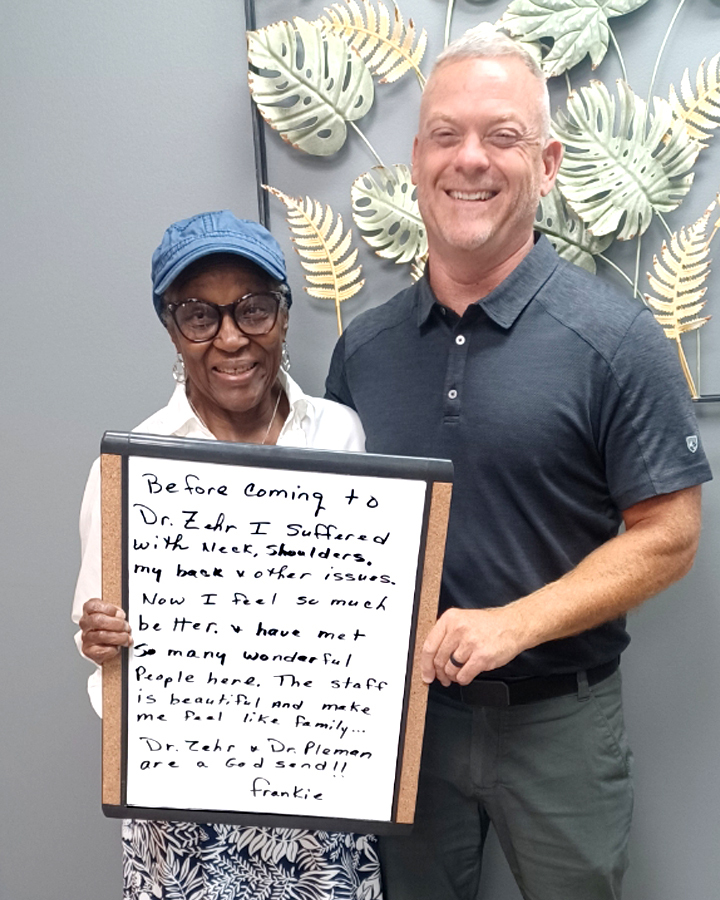 Before coming to
Dr. Zehr I suffered
with Neck, shoulders,
my back & other issues.
Now I feel so much
better. & have met
so many wonderful
People here. The staff
is beautiful and make
me feel like family...
Dr. Zehr & Dr. Pleman
are a God send!!
Frankie